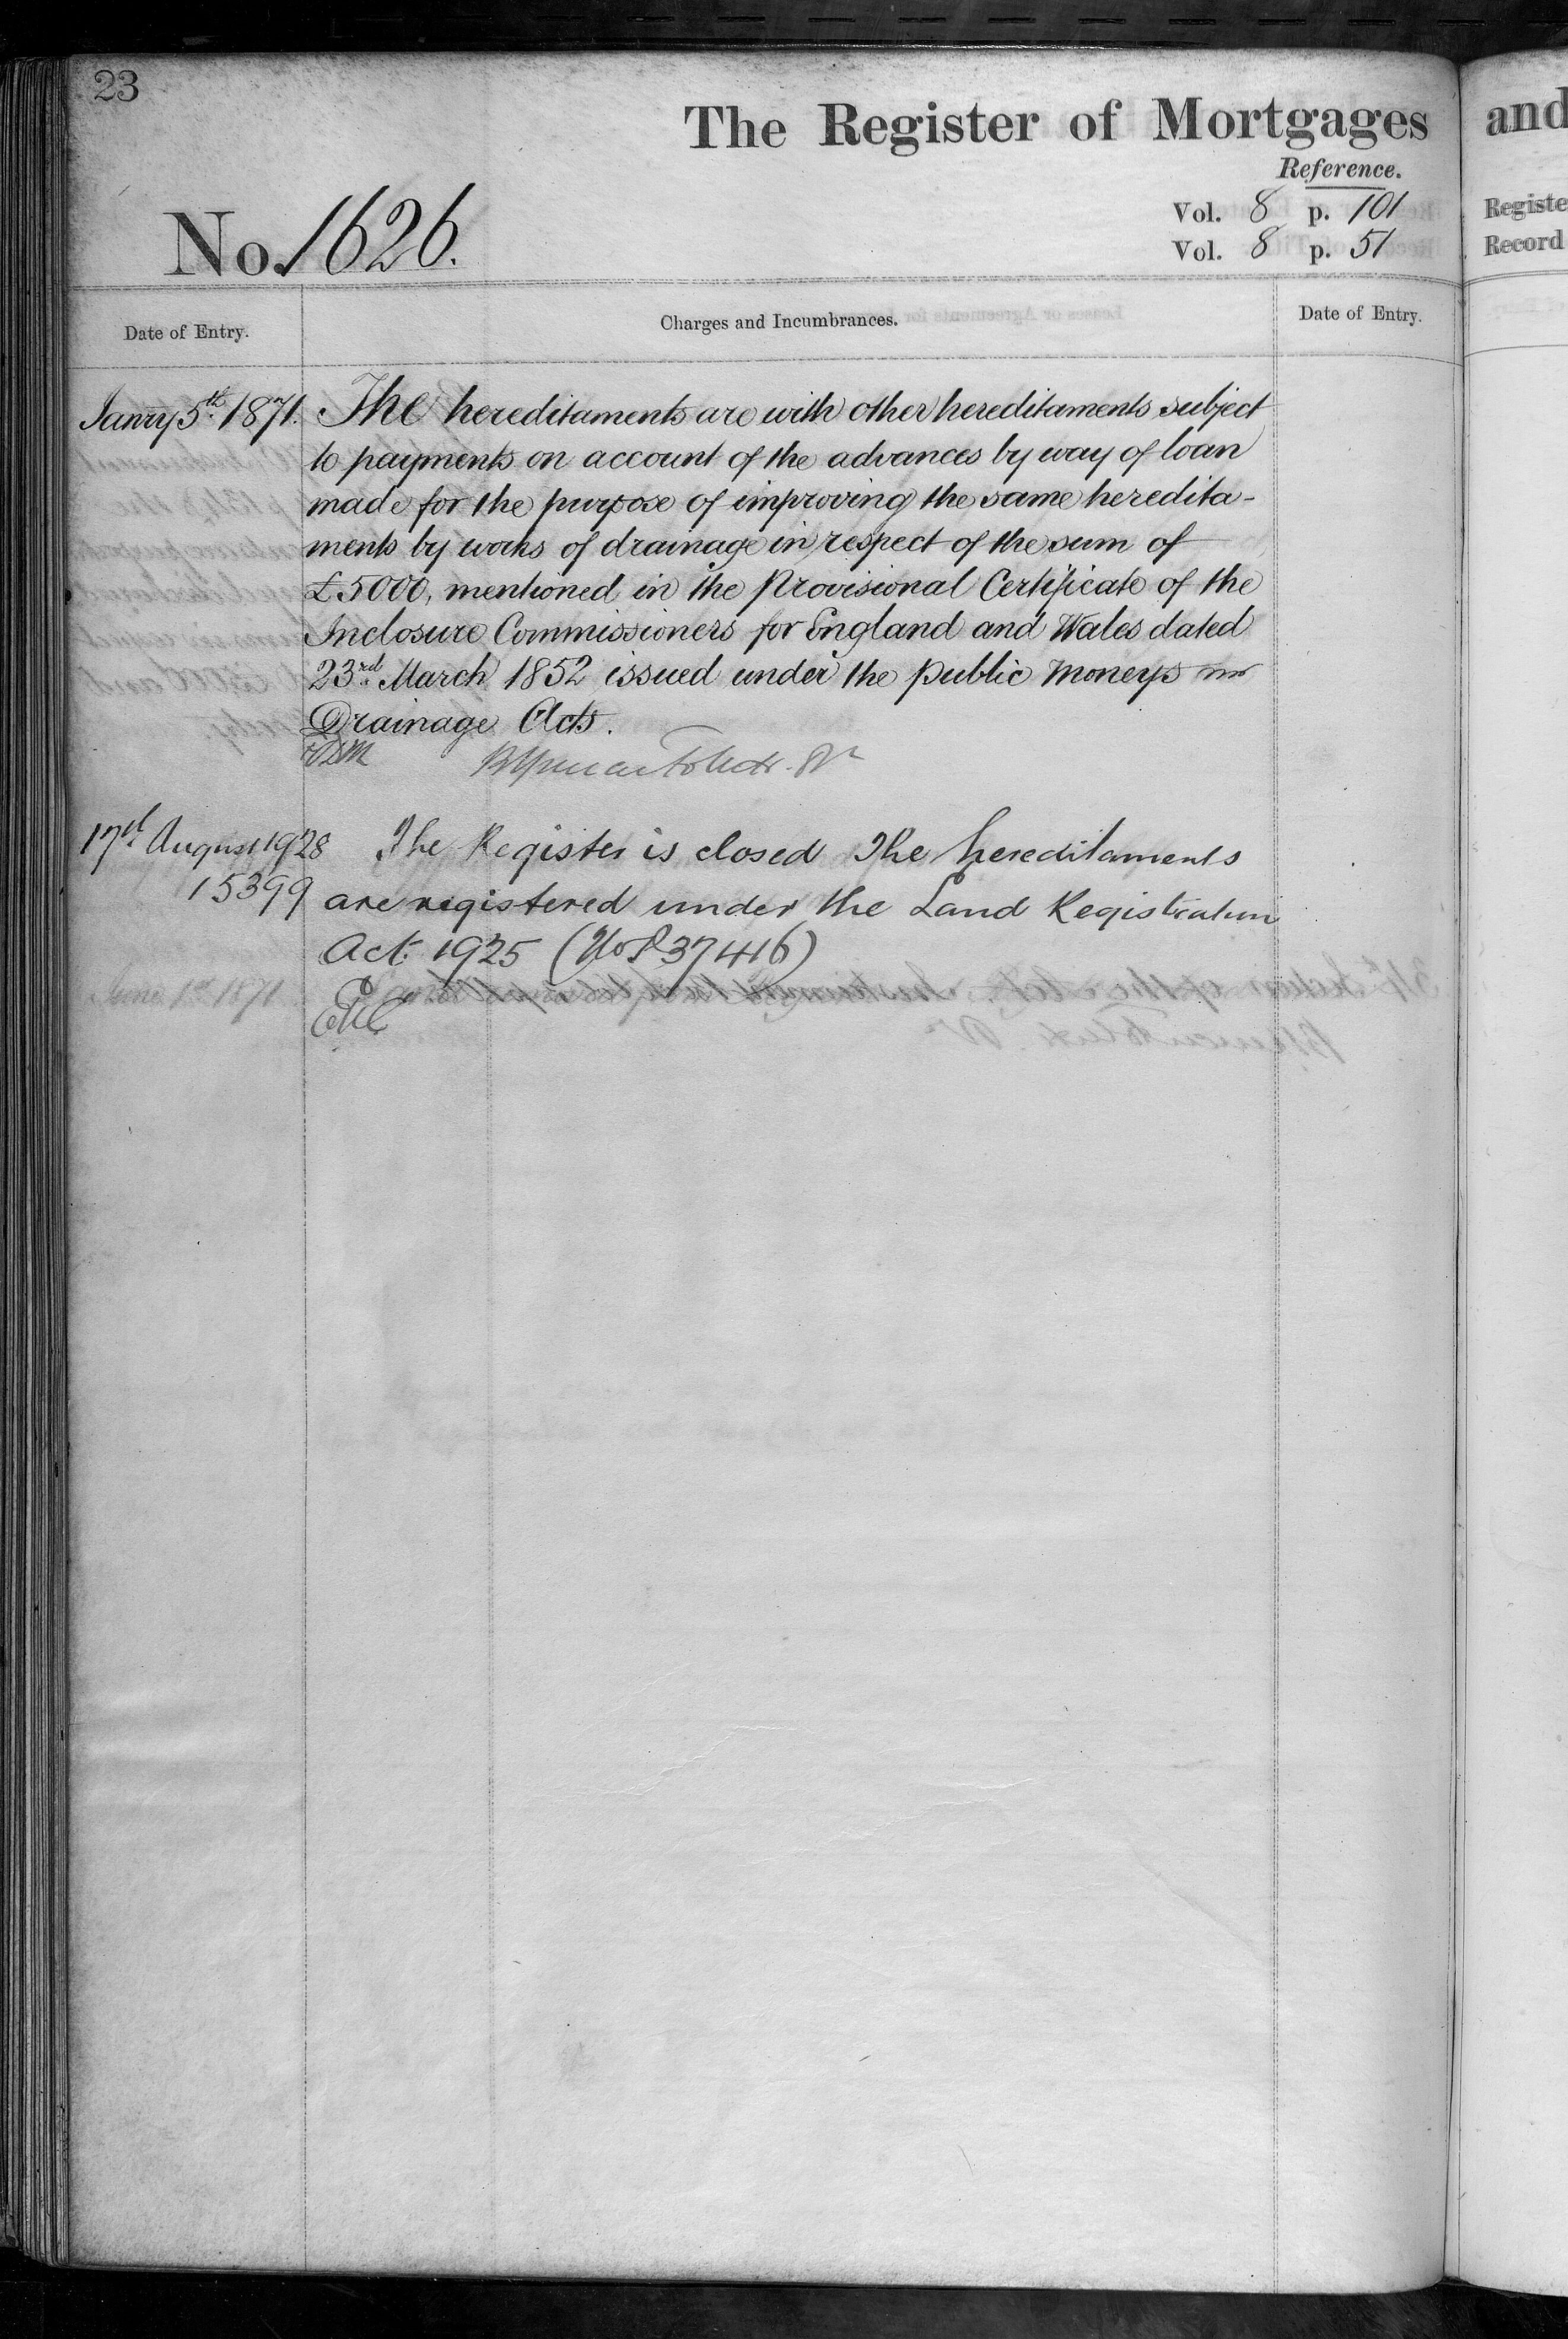 23
The Register of Mortgages
and
Reference.
Vol. 8 p. 101
Vol. 8 p. 51
Registe
Record
No. 1626.
Date of Entry.
Charges and Incumbrances.
Date of Entry.
Janry 5th 1871. The hereditaments are with other hereditaments subject
to payments on account of the advances by way of loan
made for the purpose of improving the same heredita-
ments by works of drainage in respect of the sum of
£5000, mentioned in the Provisional Certificate of the
Inclosure Commissioners for England and Wales dated
23rd March 1852 issued under the Public Moneys
Drainage Acts.
17th August 1928 The Register is closed The hereditaments
15399 are registered under the Land Registration
Act. 1925 (No P37416)
June 1st 1871